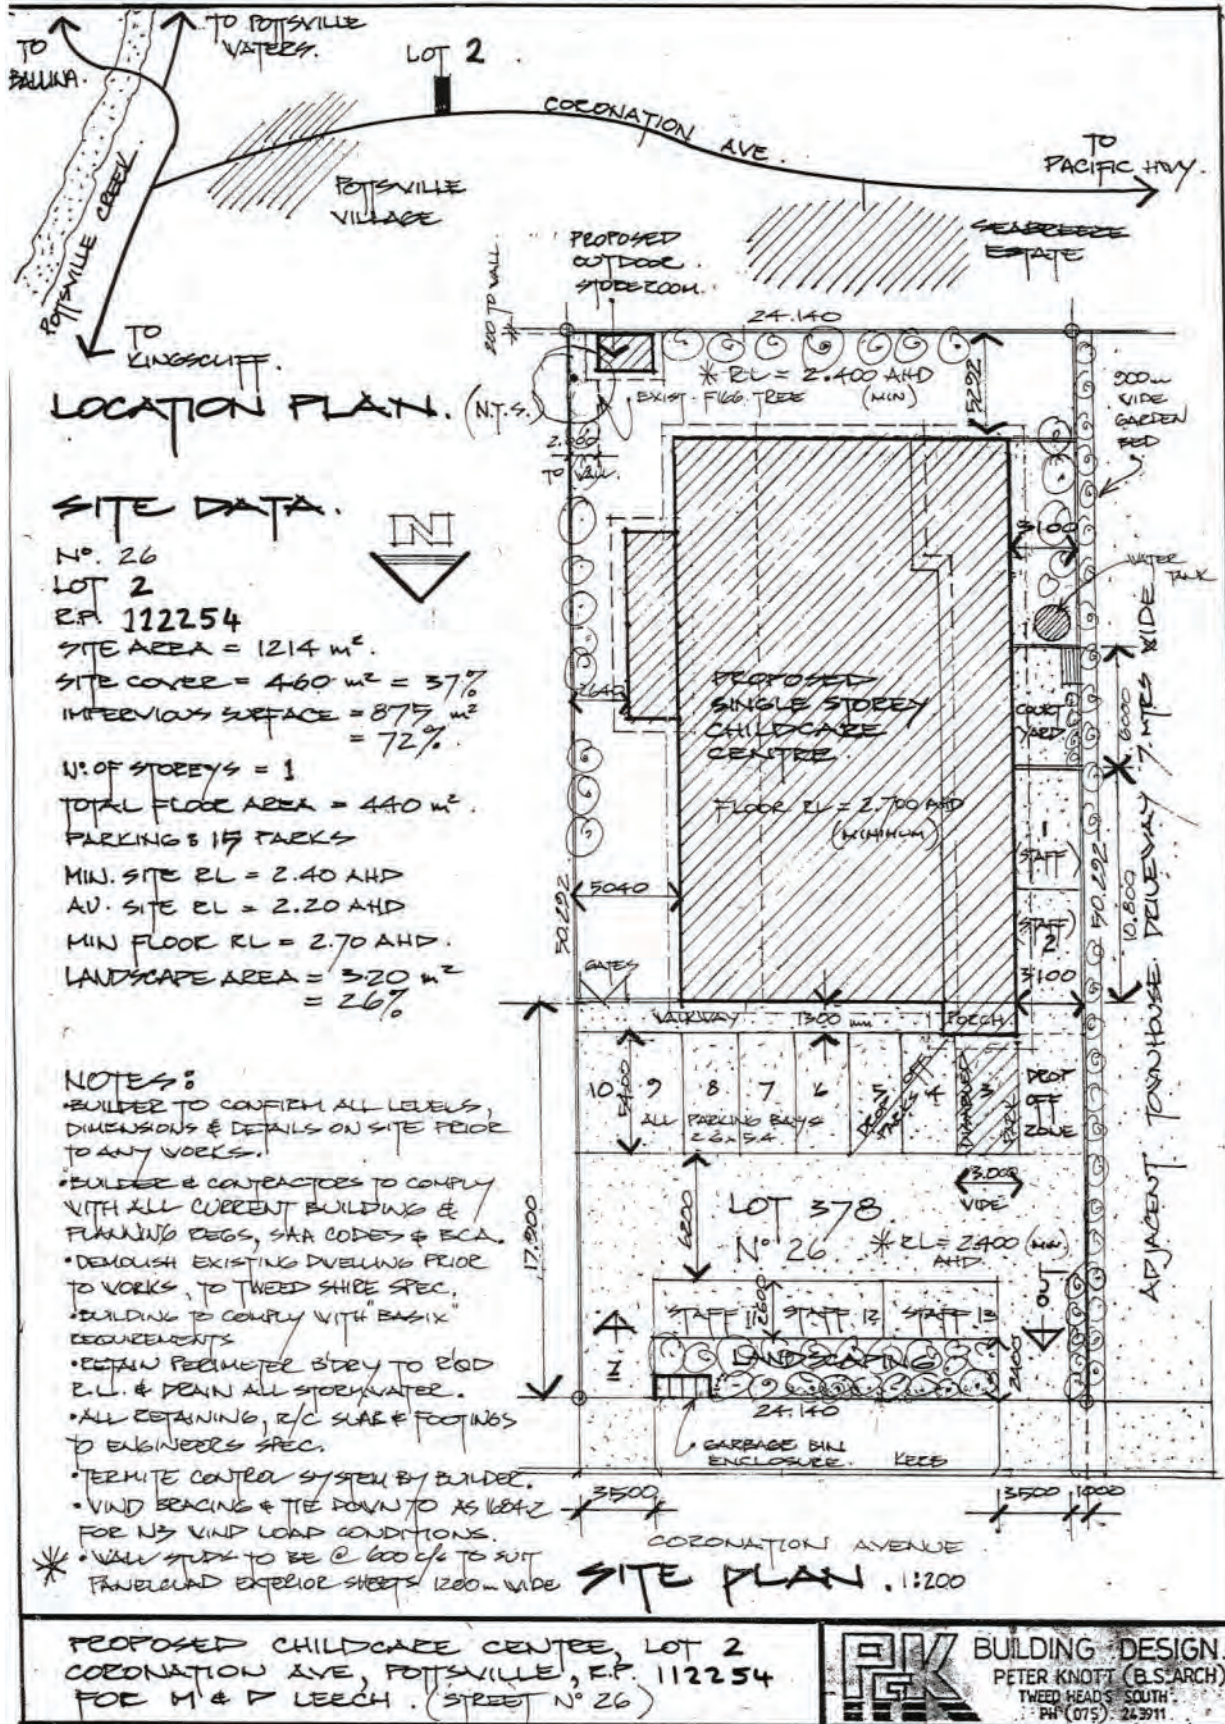 TO
BALLINA.
TO POTTSVILLE
WATERS.
LOT 2
CORONATION AVE.
TO
PACIFIC HWY.
POTTSVILLE CREEK
POTTSVILLE
VILLAGE
SEABREEZE
ESTATE
TO
KINGSCLIFF.
LOCATION PLAN. (N.T.S.)
PROPOSED
OUTDOOR
STOREROOM.
200 TO WALL
24.140
* RL = 2.400 AHD
(MIN)
EXIST. FIGG TREE
5292
900m
WIDE
GARDEN
BED
TO WALL
SITE DATA.
N
Nº. 26
LOT 2
R.P. 112254
SITE AREA = 1214 m².
SITE COVER = 460 m² = 37%
IMPERVIOUS SURFACE = 875 m²
= 72%
Nº OF STOREYS = 1
TOTAL FLOOR AREA = 440 m².
PARKING : 15 PARKS
MIN. SITE RL = 2.40 AHD
AV. SITE RL = 2.20 AHD
MIN FLOOR RL = 2.70 AHD.
LANDSCAPE AREA = 320 m²
= 26%
3100
WATER
TANK
2640
PROPOSED
SINGLE STOREY
CHILDCARE
CENTRE.
FLOOR RL = 2.700 AHD
(MINIMUM)
COURT
YARD
6000
1
(STAFF)
(STAFF)
2
3100
50.292
10.800
ADJACENT TOWNHOUSE DRIVEWAY 7 MTRS WIDE
5040
50.292
GATES
WALKWAY 1300 mm PORCH
10 9 8 7 6 5 4 3
5400
ALL PARKING BAYS
2.6 x 5.4
DROP OFF
PARKS
DISABLED
PARK
DROP
OFF
ZONE
3.000
WIDE
17.900
6200
LOT 378
Nº 26
* RL = 2400 (MIN)
AHD
OUT
IN
STAFF 11 STAFF 12 STAFF 13
2600
LANDSCAPING
2400
24.140
GARBAGE BIN
ENCLOSURE.
KERB
3500
3500 1000
CORONATION AVENUE
SITE PLAN. 1:200
NOTES:
•BUILDER TO CONFIRM ALL LEVELS,
DIMENSIONS & DETAILS ON SITE PRIOR
TO ANY WORKS.
•BUILDER & CONTRACTORS TO COMPLY
WITH ALL CURRENT BUILDING &
PLANNING REGS, SAA CODES & BCA.
•DEMOLISH EXISTING DWELLING PRIOR
TO WORKS, TO TWEED SHIRE SPEC.
•BUILDING TO COMPLY WITH "BASIX"
REQUIREMENTS
•RETAIN PERIMETER B'DRY TO R'QD
R.L. & DRAIN ALL STORMWATER.
•ALL RETAINING, R/C SLAB & FOOTINGS
TO ENGINEERS SPEC.
•TERMITE CONTROL SYSTEM BY BUILDER.
•WIND BRACING & TIE DOWN TO AS 1684-2
FOR N3 WIND LOAD CONDITIONS.
* •WALL STUDS TO BE @ 600 c/c TO SUIT
PANELCLAD EXTERIOR SHEETS 1200m WIDE
PROPOSED CHILDCARE CENTRE, LOT 2
CORONATION AVE, POTTSVILLE, R.P. 112254
FOR M & D LEECH. (STREET Nº 26)
PK
BUILDING DESIGN.
PETER KNOTT (B.S.ARCH)
TWEED HEADS SOUTH
PH (075) 243911